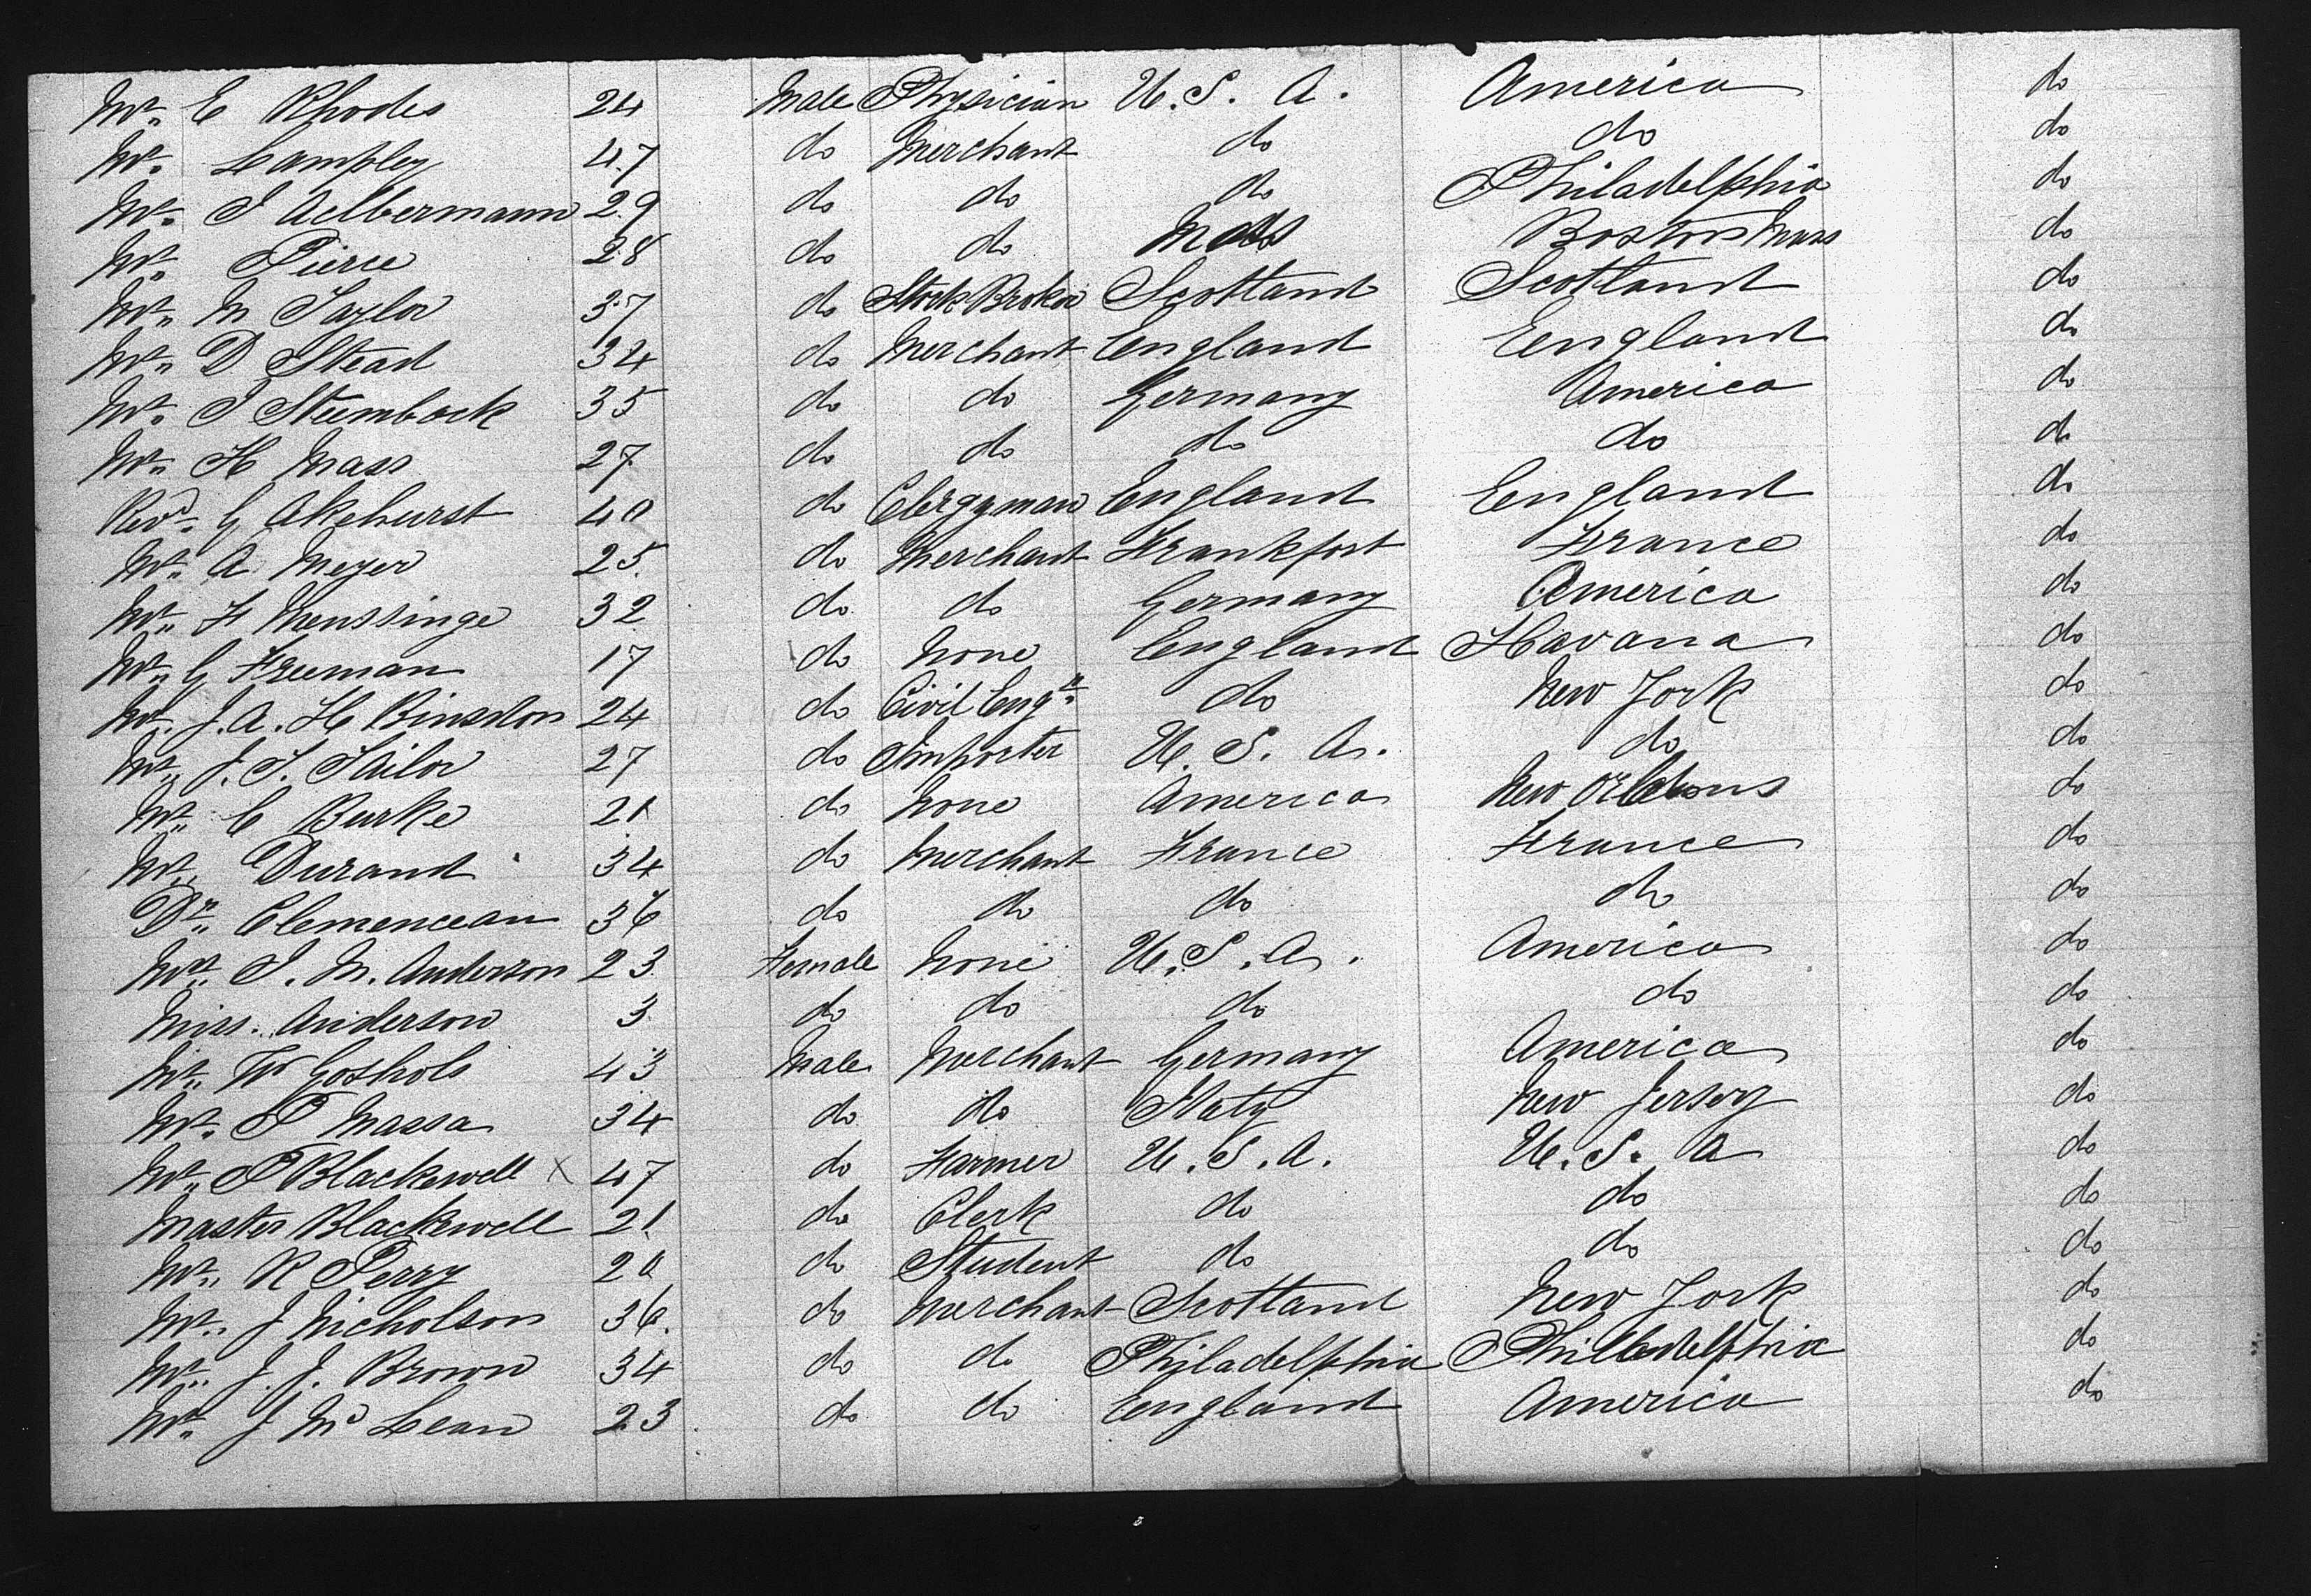 Mr. E Rhodes 24 Male Physician U.S. A. America do
Mr. Lampley 47 do Merchant do do do
Mr. J Aelbermann 29 do do do Philadelphia do
Mr. Pierce 28 do do Mass Boston Mass do
Mr. M Taylor 37 do Stock Broker Scotland Scotland do
Mr. D Stead 34 do Merchant England England do
Mr. J Steinbock 35 do do Germany America do
Mr. H Mass 27 do do do do do
Revd. G Akehurst 40 do Clergyman England England do
Mr. A Meyer 25 do Merchant Frankfort France do
Mr. F Menssinge 32 do do Germany America do
Mr. G Freeman 17 do None England Havana do
Mr. J.A.H Binsdon 24 do Civil Engr. do New York do
Mr. J.T. Tailor 27 do Importer U.S. A. do do
Mr. C Burke 21 do None America New Orleans do
Mr. Durand 34 do Merchant France France do
Dr. Clemenceau 36 do do do do do
Mrs. J. M. Anderson 23 Female None U.S.A. America do
Miss. Anderson 3 do do do do do
Mr. W Goshols 43 Male Merchant Germany America do
Mr. P Massa 34 do do Italy New Jersey do
Mr. P Blackwell X 47 do Farmer U.S.A. U.S. A do
Master Blackwell 21 do Clerk do do do
Mr. R Perry 20 do Student do do do
Mr. J Nicholson 36 do Merchant Scotland New York do
Mr. J. J. Brown 34 do do Philadelphia Philadelphia do
Mr. J Mc Lean 23 do do England America do